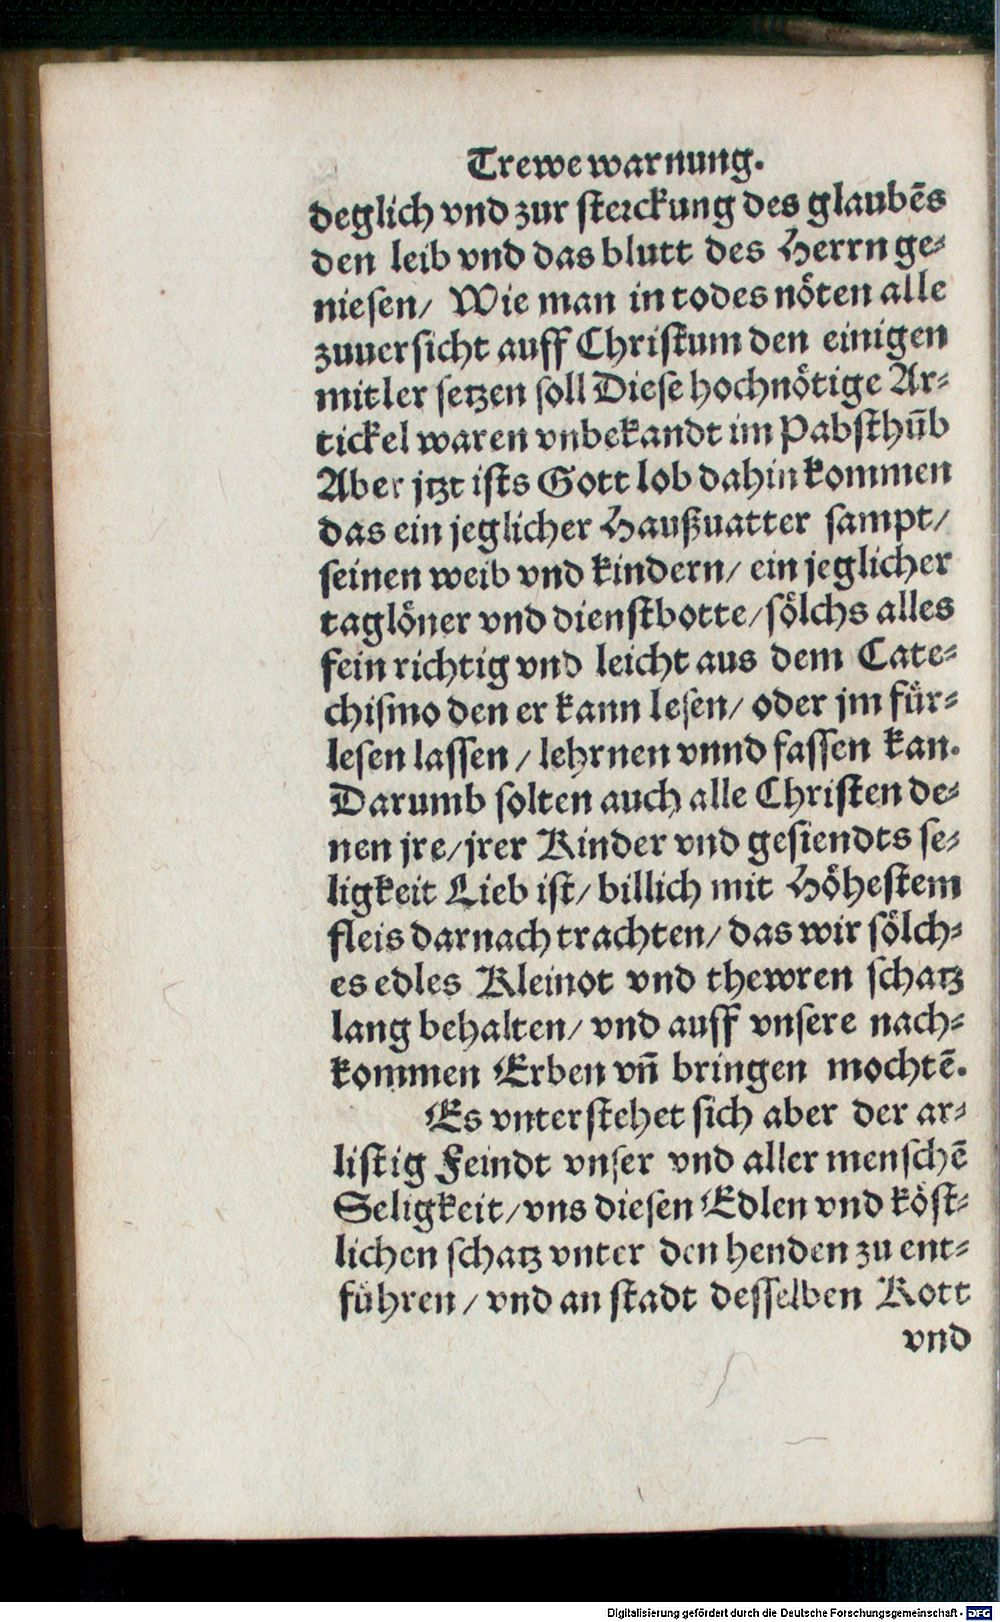 Trewe warnung.
deglich vnd zur sterckung des glaubēs
den leib vnd das blutt des Herrn ge-
niesen/ Wie man in todes nöten alle
zuuersicht auff Christum den einigen
mitler setzen soll Diese hochnötige Ar-
tickel waren vnbekandt im Pabsthūb
Aber jtzt ists Gott lob dahin kommen
das ein jeglicher Haußuatter sampt/
seinen weib vnd kindern/ ein jeglicher
taglöner vnd dienstbotte/ sölchs alles
fein richtig vnd leicht aus dem Cate-
chismo den er kann lesen/ oder jm für-
lesen lassen/ lehrnen vnnd fassen kan.
Darumb solten auch alle Christen de-
nen jre/ jrer Kinder vnd gesiendts se-
ligkeit Lieb ist/ billich mit Höhestem
fleis darnach trachten/ das wir sölch-
es edles Kleinot vnd thewren schatz
lang behalten/ vnd auff vnsere nach-
kommen Erben vn̄ bringen mochtē.
Es vnterstehet sich aber der ar-
listig Feindt vnser vnd aller menschē
Seligkeit/ vns diesen Edlen vnd köst-
lichen schatz vnter den henden zu ent-
führen/ vnd an stadt desselben Kott
vnd
Digitalisierung gefördert durch die Deutsche Forschungsgemeinschaft - DFG